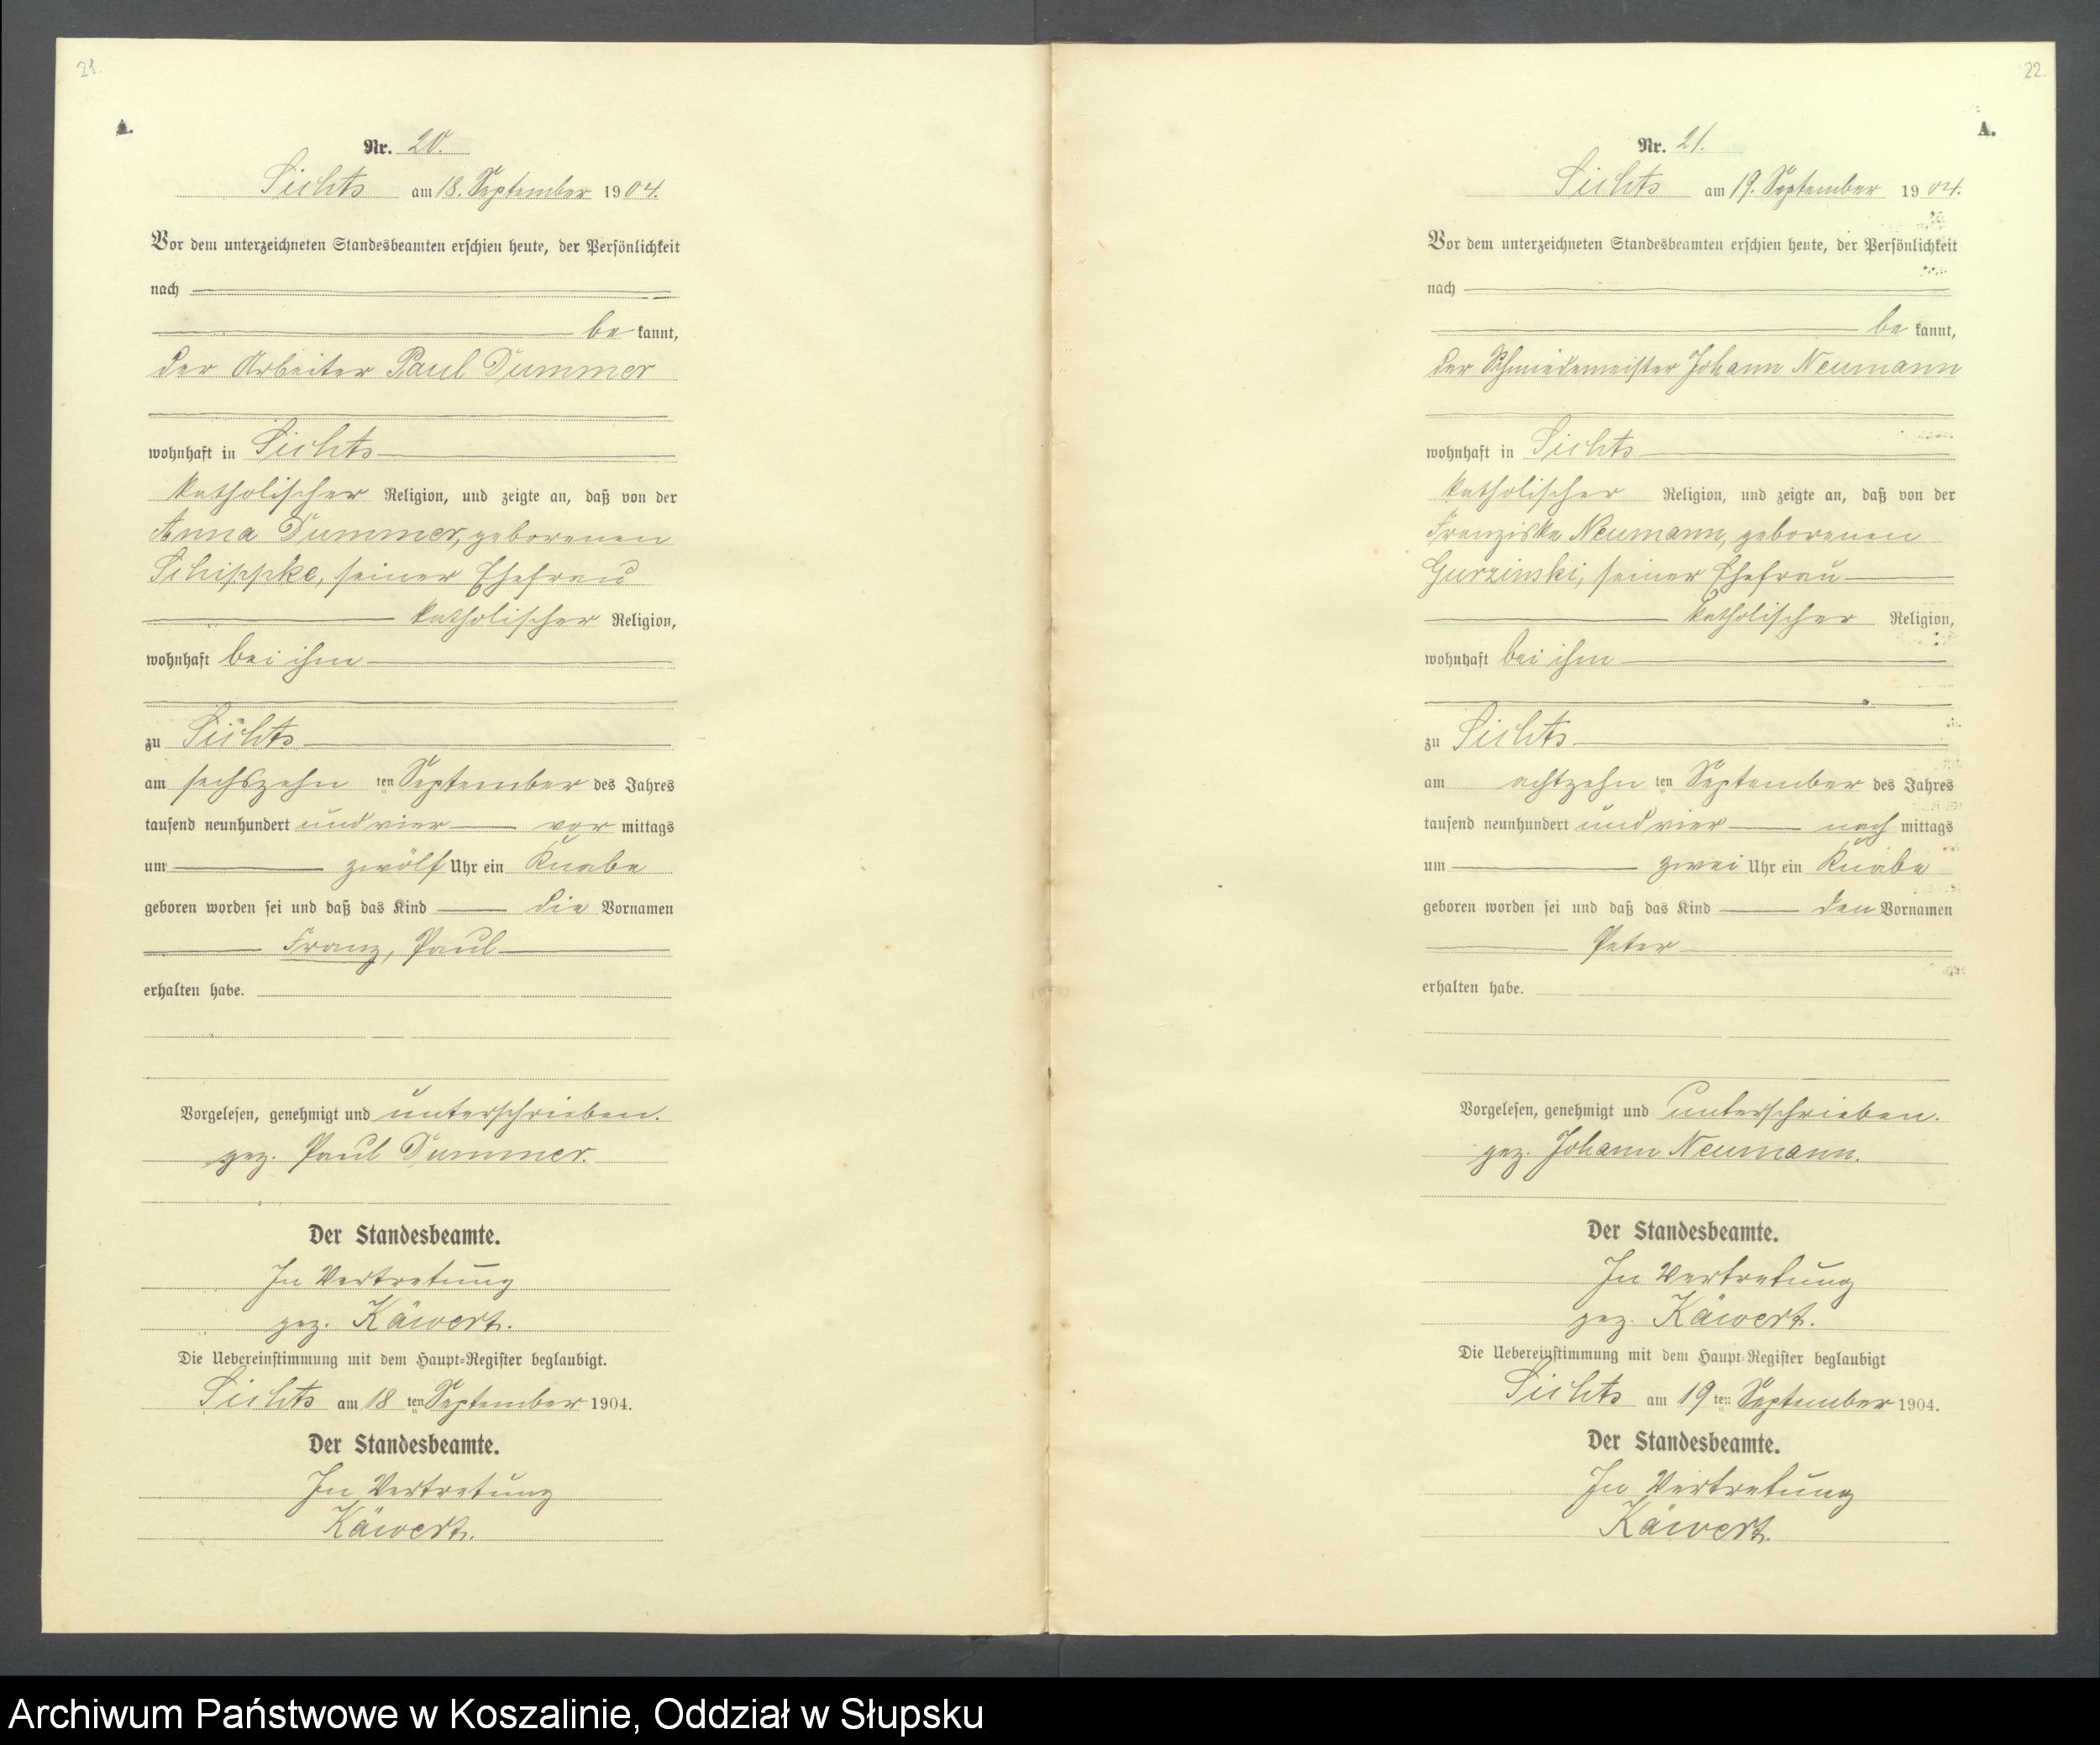 21.
A.
Nr. 20.
Lichts am 18. September 1904.
Vor dem unterzeichneten Standesbeamten erschien heute, der Persönlichkeit
nach
be kannt,
der Arbeiter Paul Dummer
wohnhaft in Lichts
katholischer Religion, und zeigte an, daß von der
Anna Dummer, geborenen
Schippke, seiner Ehefrau
katholischer Religion,
wohnhaft bei ihm
zu Lichts
am sechszehn ten September des Jahres
tausend neunhundert und vier vor mittags
um zwölf Uhr ein Knabe
geboren worden sei und daß das Kind die Vornamen
Franz, Paul
erhalten habe.
Vorgelesen, genehmigt und unterschrieben.
gez. Paul Dummer.
Der Standesbeamte.
In Vertretung
gez. Käwert.
Die Uebereinstimmung mit dem Haupt-Register beglaubigt.
Lichts am 18 ten September 1904.
Der Standesbeamte.
In Vertretung
Käwert.
22.
A.
Nr. 21.
Lichts am 19. September 1904.
Vor dem unterzeichneten Standesbeamten erschien heute, der Persönlichkeit
nach
be kannt,
der Schmiedemeister Johann Neumann
wohnhaft in Lichts
katholischer Religion, und zeigte an, daß von der
Franziska Neumann, geborenen
Gurzinski, seiner Ehefrau
katholischer Religion,
wohnhaft bei ihm
zu Lichts
am achtzehn ten September des Jahres
tausend neunhundert und vier nach mittags
um zwei Uhr ein Knabe
geboren worden sei und daß das Kind den Vornamen
Peter
erhalten habe.
Vorgelesen, genehmigt und unterschrieben.
gez. Johann Neumann.
Der Standesbeamte.
In Vertretung
gez. Käwert.
Die Uebereinstimmung mit dem Haupt-Register beglaubigt
Lichts am 19 ten September 1904.
Der Standesbeamte.
In Vertretung
Käwert.
Archiwum Państwowe w Koszalinie, Oddział w Słupsku